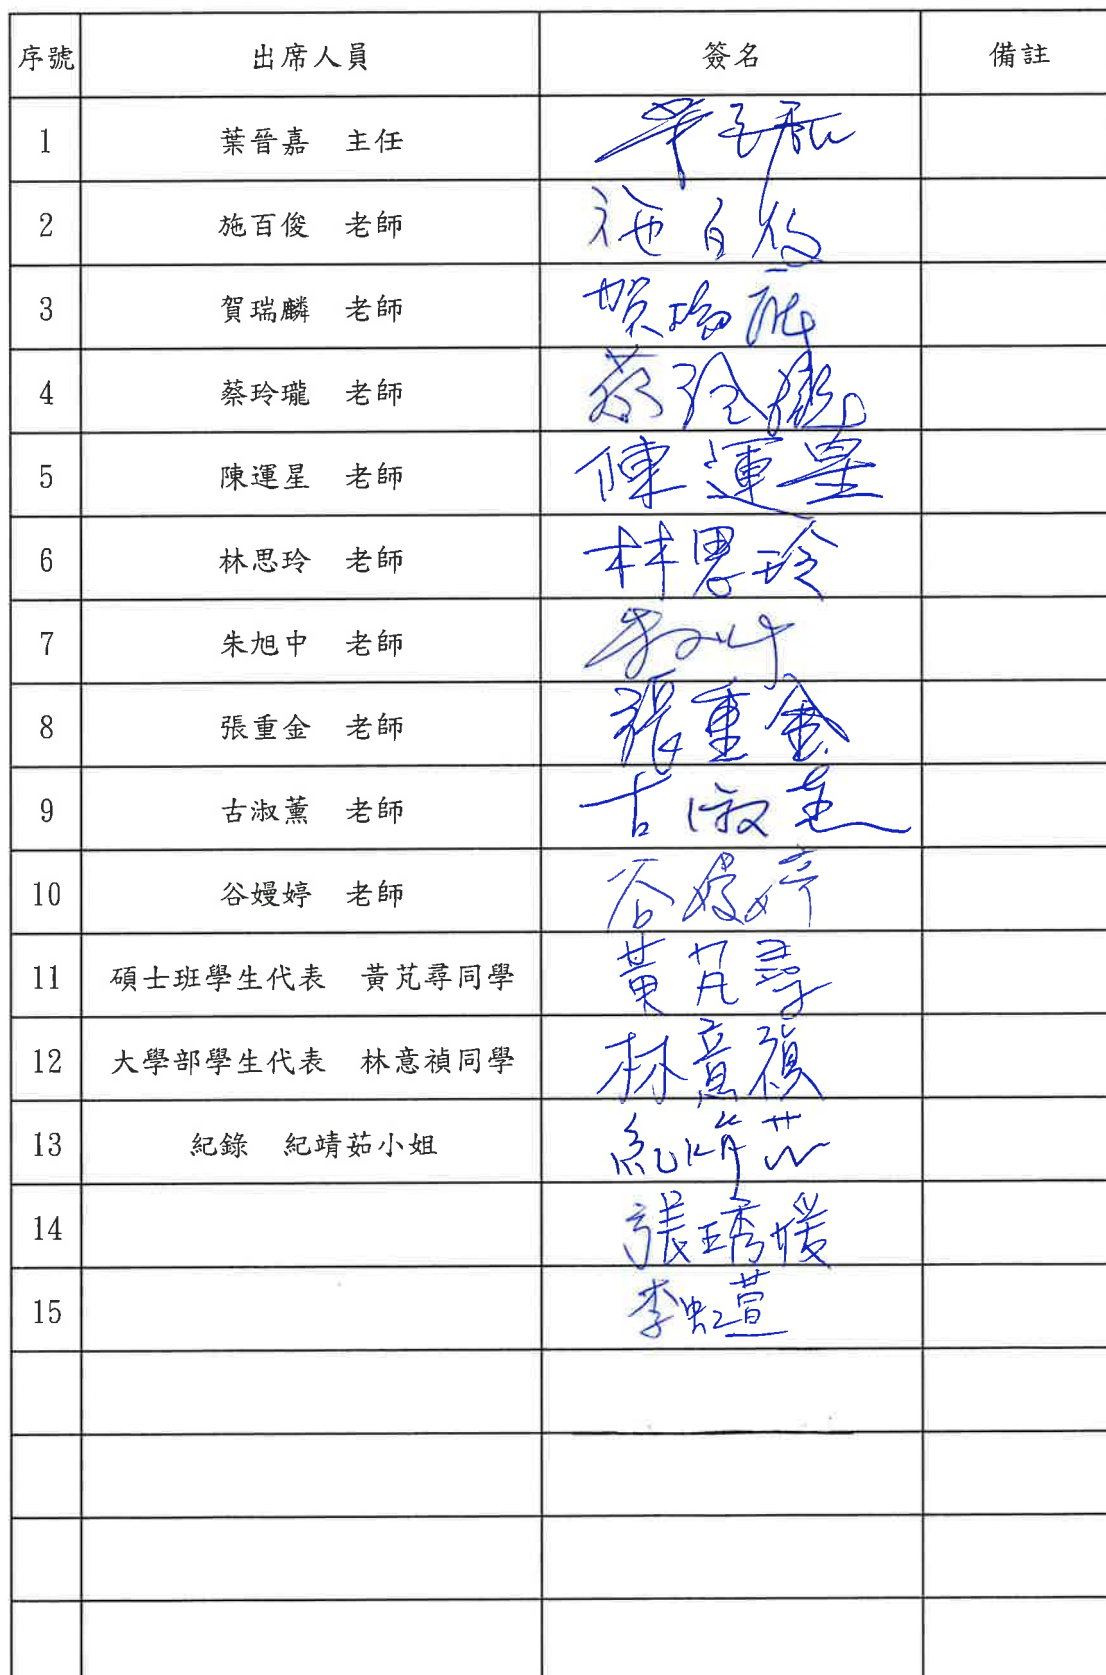 序號 出席人員 簽名 備註
1 葉晉嘉 主任
2 施百俊 老師 施百俊
3 賀瑞麟 老師 賀瑞麟
4 蔡玲瓏 老師 蔡玲瓏
5 陳運星 老師 陳運星
6 林思玲 老師 林思玲
7 朱旭中 老師
8 張重金 老師 張重金
9 古淑薰 老師 古淑薰
10 谷嫚婷 老師 谷嫚婷
11 碩士班學生代表 黃芃尋同學 黃芃尋
12 大學部學生代表 林意禎同學 林意禎
13 紀錄 紀靖茹小姐 紀靖茹
14 張琇媛
15 李虹萱